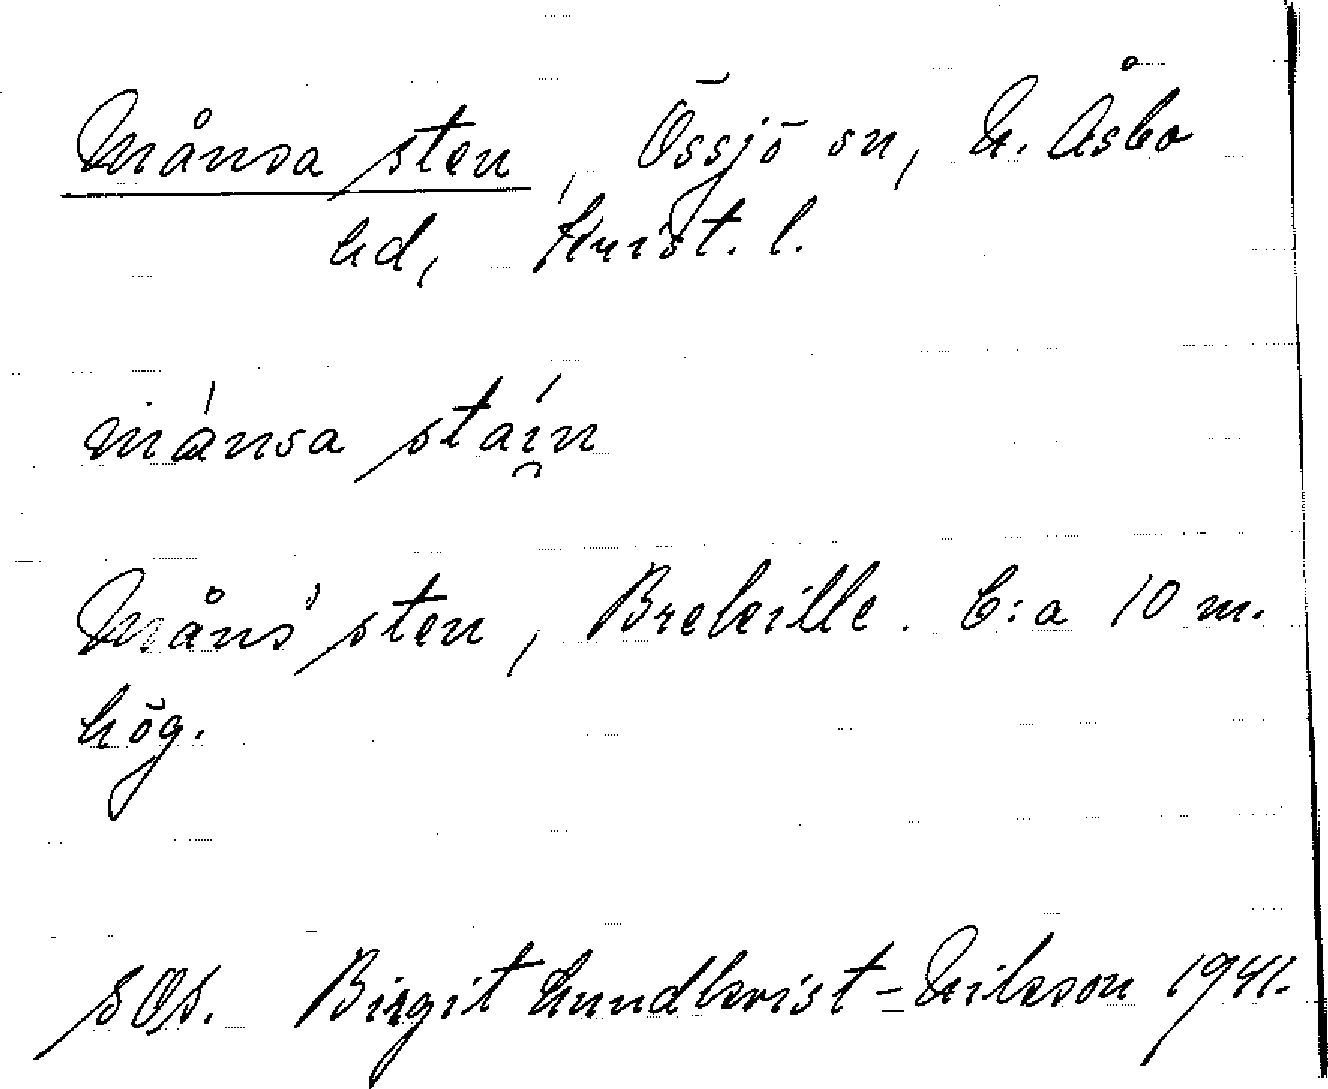 Månsa sten, Össjö sn, N. Åsbo
hd, Krist. l.
mánsa staín
Måns' sten, Brekille. C:a 10 m.
hög.
SOS. Birgit Lundkvist-Nilsson 1941.